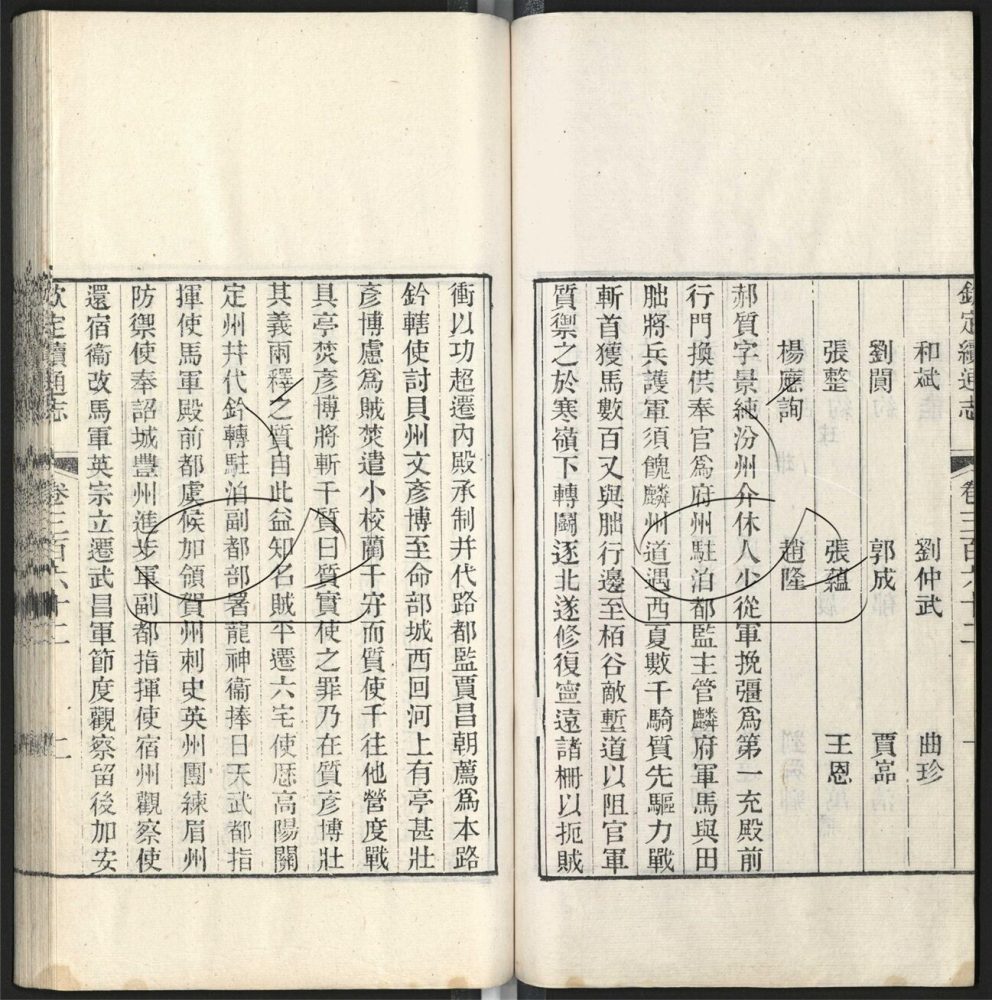 欽定續通志 卷三百六十二 一
和斌 劉仲武 曲珍
劉闃 郭成 賈嵓
張整 張蘊 王恩
楊應詢 趙隆
郝質字景純汾州介休人少從軍挽彊爲第一充殿前
行門換供奉官爲府州駐泊都監主管麟府軍馬與田
朏將兵護軍須餽麟州道遇西夏數千騎質先驅力戰
斬首獲馬數百又與朏行邊至栢谷敵塹道以阻官軍
質禦之於寒嶺下轉鬭逐北遂修復寧遠諸柵以扼賊
衝以功超遷內殿承制并代路都監賈昌朝薦爲本路
鈐轄使討貝州文彥博至命部城西回河上有亭甚壯
彥博慮爲賊焚遣小校藺千守而質使千往他營度戰
具亭焚彥博將斬千質曰質實使之罪乃在質彥博壯
其義兩釋之質自此益知名賊平遷六宅使歷高陽關
定州并代鈐轉駐泊副都部署龍神衞捧日天武都指
揮使馬軍殿前都虞候加領賀州刺史英州團練眉州
防禦使奉詔城豐州進步軍副都指揮使宿州觀察使
還宿衞改馬軍英宗立遷武昌軍節度觀察留後加安
欽定續通志 卷三百六十二